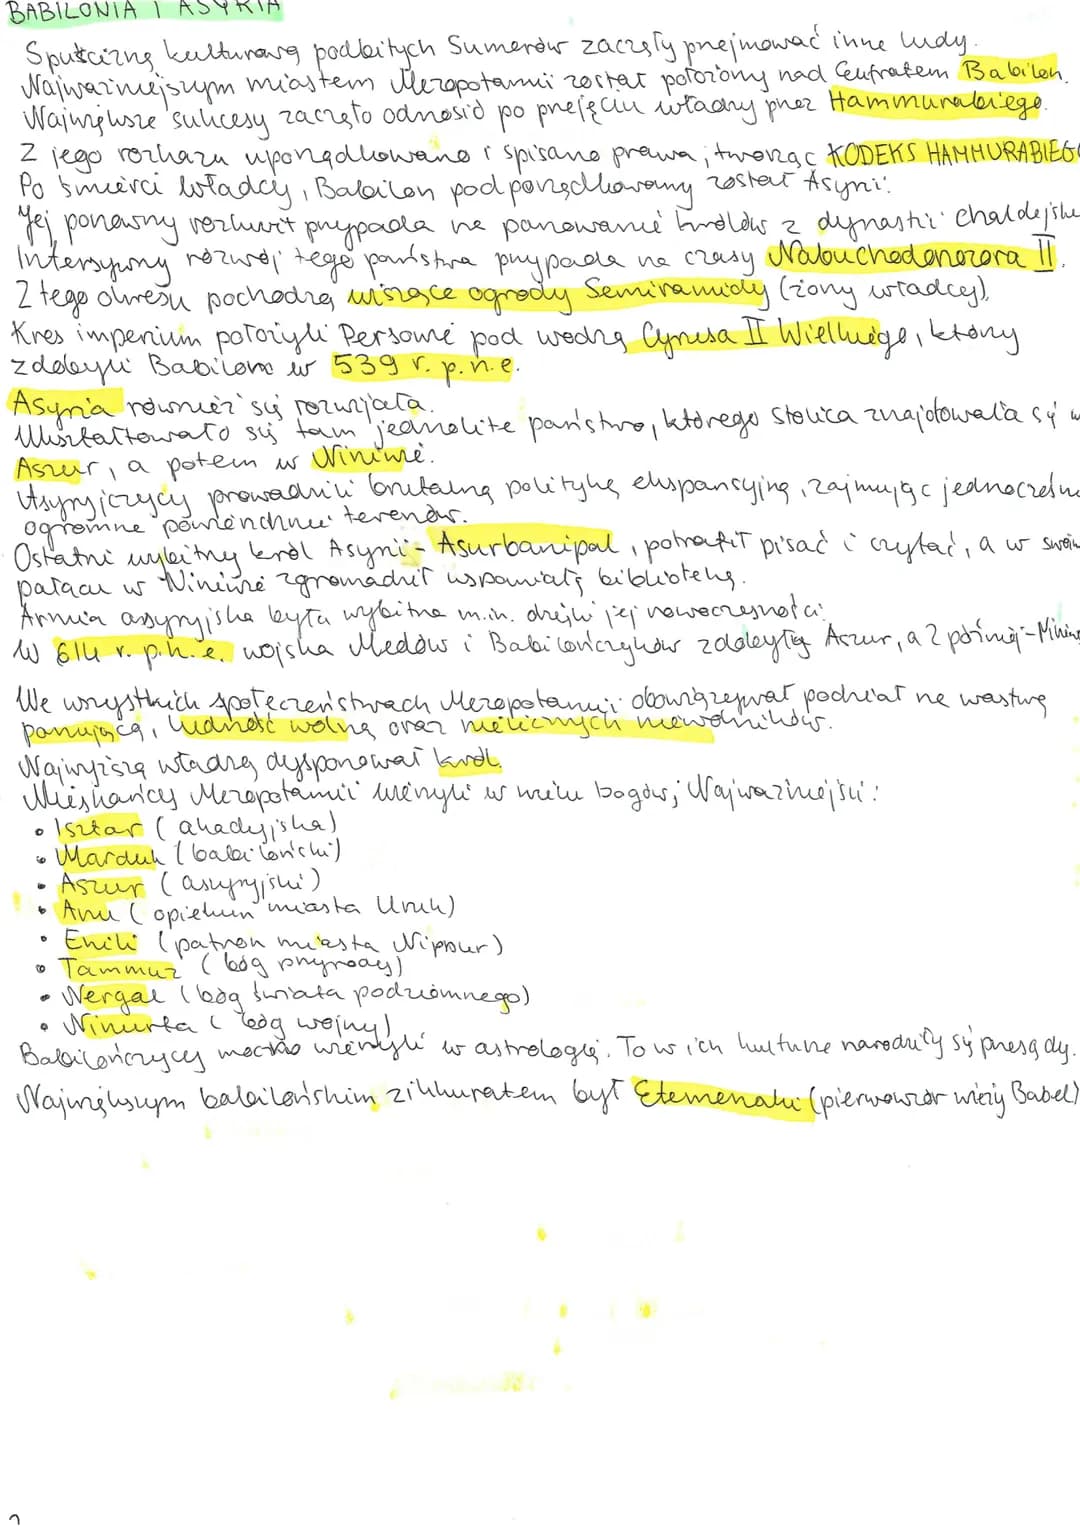 BABILONIA I ASYRIA
Spuściznę kulturową podbitych Sumerów zaczęły przejmować inne ludy.
Najważniejszym miastem Mezopotamii został położony nad Eufratem Babilon.
Największe sukcesy zaczęto odnosić po przejęciu władzy przez Hammurabiego.
Z jego rozkazu uporządkowano i spisano prawa, tworząc KODEKS HAMMURABIEGO
Po śmierci władcy, Babilon podporządkowany został Asyrii.
Jej ponowny rozkwit przypada na panowanie królów z dynastii chaldejskie
Intensywny rozwój tego państwa przypada na czasy Nabuchodonozora II.
Z tego okresu pochodzą wiszące ogrody Semiramidy (żony władcy).
Kres imperium położyli Persowie pod wodzą Cyrusa II Wielkiego, który
zdobyli Babilon w 539 r. p.n.e.
Asyria również się rozwijała.
Ukształtowało się tam jednolite państwo, którego stolica znajdowała się w
Aszur, a potem w Niniwie.
Asyryjczycy prowadzili brutalną politykę ekspansyjną, zajmując jednocześnie
ogromne powierzchnie terenów.
Ostatni wybitny król Asyrii - Asurbanipal, potrafił pisać i czytać, a w swoim
pałacu w Niniwie zgromadził wspaniałą bibliotekę.
Armia asyryjska była wybitna m.in. dzięki jej nowoczesności.
W 614 r. p.n.e. wojska Medów i Babilończyków zdobyły Aszur, a 2 później - Niniwę
We wszystkich społeczeństwach Mezopotamii obowiązywał podział na wastwę
panującą, ludność wolną oraz nielicznych niewolników.
Najwyższą władzę dysponował król.
Mieszkańcy Mezopotamii wierzyli w wielu bogów; Najważniejsi:
• Isztar (akadyjska)
• Marduk (babiloński)
• Aszur (asyryjski)
• Anu (opiekun miasta Uruk)
• Enili (patron miasta Nippur)
• Tammuz (bóg przyrody)
• Nergal (bóg świata podziemnego)
• Ninurta (bóg wojny)
Babilończycy mocno wierzyli w astrologię. To w ich kulturze narodziły się przesądy.
Największym babilońskim zikkuratem był Etemenaki (pierwowzór wieży Babel)